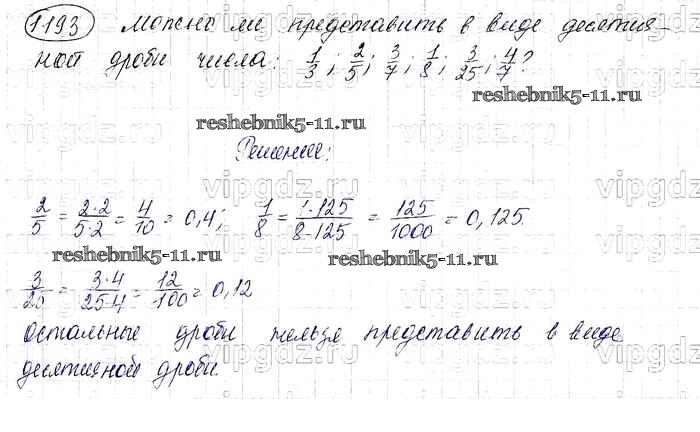 1193 Можно ли представить в виде десятич-
ной дроби числа: 1/3; 2/5; 3/7; 1/8; 3/25; 4/7?
reshebnik5-11.ru
reshebnik5-11.ru
Решение:
2/5 = 2·2/5·2 = 4/10 = 0,4; 1/8 = 1·125/8·125 = 125/1000 = 0,125.
reshebnik5-11.ru
reshebnik5-11.ru
3/25 = 3·4/25·4 = 12/100 = 0,12
Остальные дроби нельзя представить в виде
десятичной дроби.
vipgdz.ru